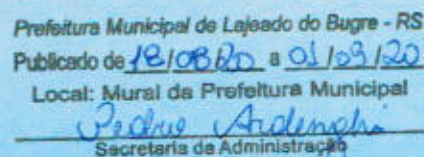 Prefeitura Municipal de Lajeado do Bugre - RS
Publicado de 18/08/20 a 01/09/20
Local: Mural da Prefeitura Municipal
Secretaria da Administração